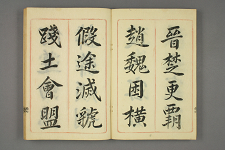 晉楚更霸
趙魏困橫
假途滅虢
踐土會盟